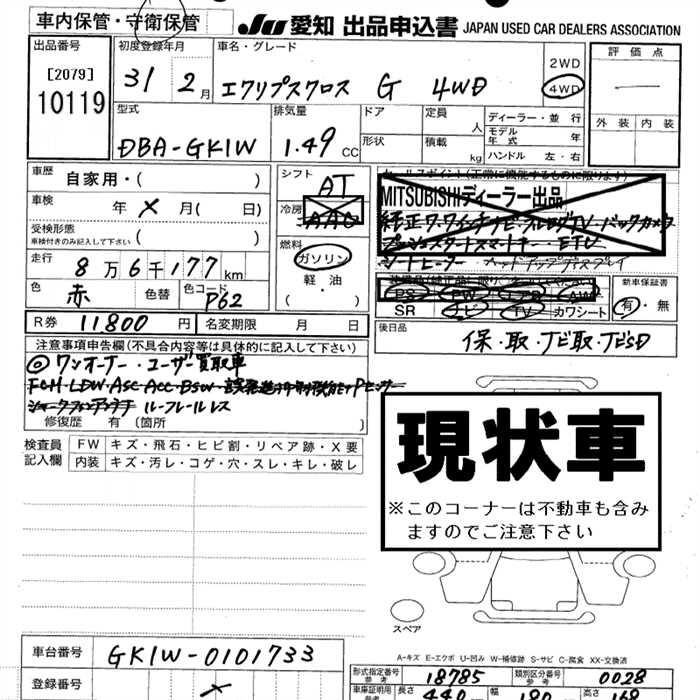 車内保管・守衛保管
JU 愛知 出品申込書 JAPAN USED CAR DEALERS ASSOCIATION
出品番号
[2079]
10119
初度登録年月
31 2月
車名・グレード
エクリプスクロス G 4WD
2WD
4WD
評価点
外装 内装
型式
DBA-GK1W
排気量
1.49 CC
ドア
形状
定員
人
積載
kg
ディーラー・並行
モデル年式 年
ハンドル 左・右
車歴
自家用・( )
車検
年 × 月( 日)
受検形態
車検付きのみ記入して下さい ( )
走行
8万6千177 km
色
赤
色替
色コード
P62
シフト
AT
冷房
AAC
燃料
ガソリン
軽油
( )
セールスポイント(正常に機能するものに限ります)
MITSUBISHIディーラー出品
プッシュスタートスマートキー ETC
シートヒーター ヘッドアップディスプレイ
PS PW AW
SR ナビ TV カワシート
新車保証書
有・無
R券 11800円
名変期限 月 日
後日品
保・取・ナビ取・ナビSD
注意事項申告欄(不具合内容等は具体的に記入して下さい)
◎ワンオーナー・ユーザー買取車
FCM・LDW・ASC・ACC・BSW・
ルーフレールレス
修復歴 有 (箇所 )
検査員記入欄
FW キズ・飛石・ヒビ割・リペア跡・X要
内装 キズ・汚レ・コゲ・穴・スレ・キレ・破レ
現状車
※このコーナーは不動車も含み
ますのでご注意下さい
スペア
A-キズ E-エクボ U-凹み W-補修跡 S-サビ C-腐食 XX-交換済
車台番号 GK1W-0101733
登録番号 ×
形式指定番号 参考 18785
類別区分番号 参考 0028
車庫証明用 参考 長さ 440 幅 180 高さ 168